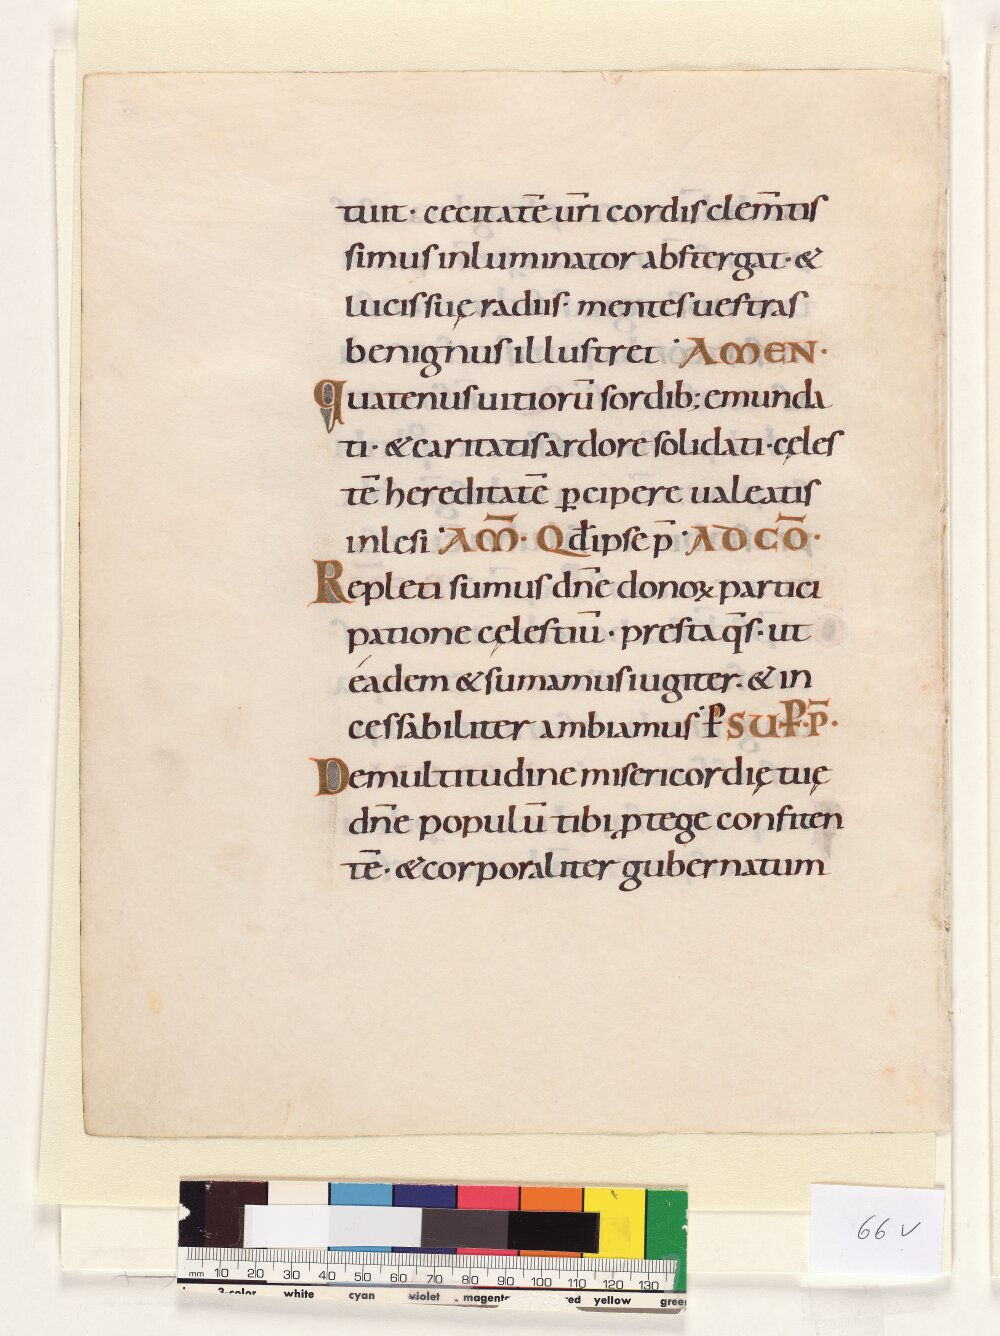 tuit · cecitatē ur̄i cordis clem̄tis
simus inluminator abstergat · &
lucis suę radiis · mentes uestras
benignus illustret · AMEN ·
quatenus uitioru̅ sordib; emunda
ti · & caritatis ardore solidati · cęles
tē hereditatē ꝑcipere ualeatis
inlesi · AM̅ · Qd̅ ipse p̅ · AD CO̅ ·
Repleti sumus dn̅e donoꝝ partici
patione cęlestiu̅ · presta qs̅ · ut
éadem & sumamus iugiter · & in
cessabiliter ambiamus · ꝑ SUP · P̅ ·
De multitudine misericordię tuę
dn̅e populu̅ tibi ꝓtege confiten
tē · & corporaliter gubernatum
66 v
mm 10 20 30 40 50 60 70 80 90 100 110 120 130
3-color white cyan violet magenta red yellow green